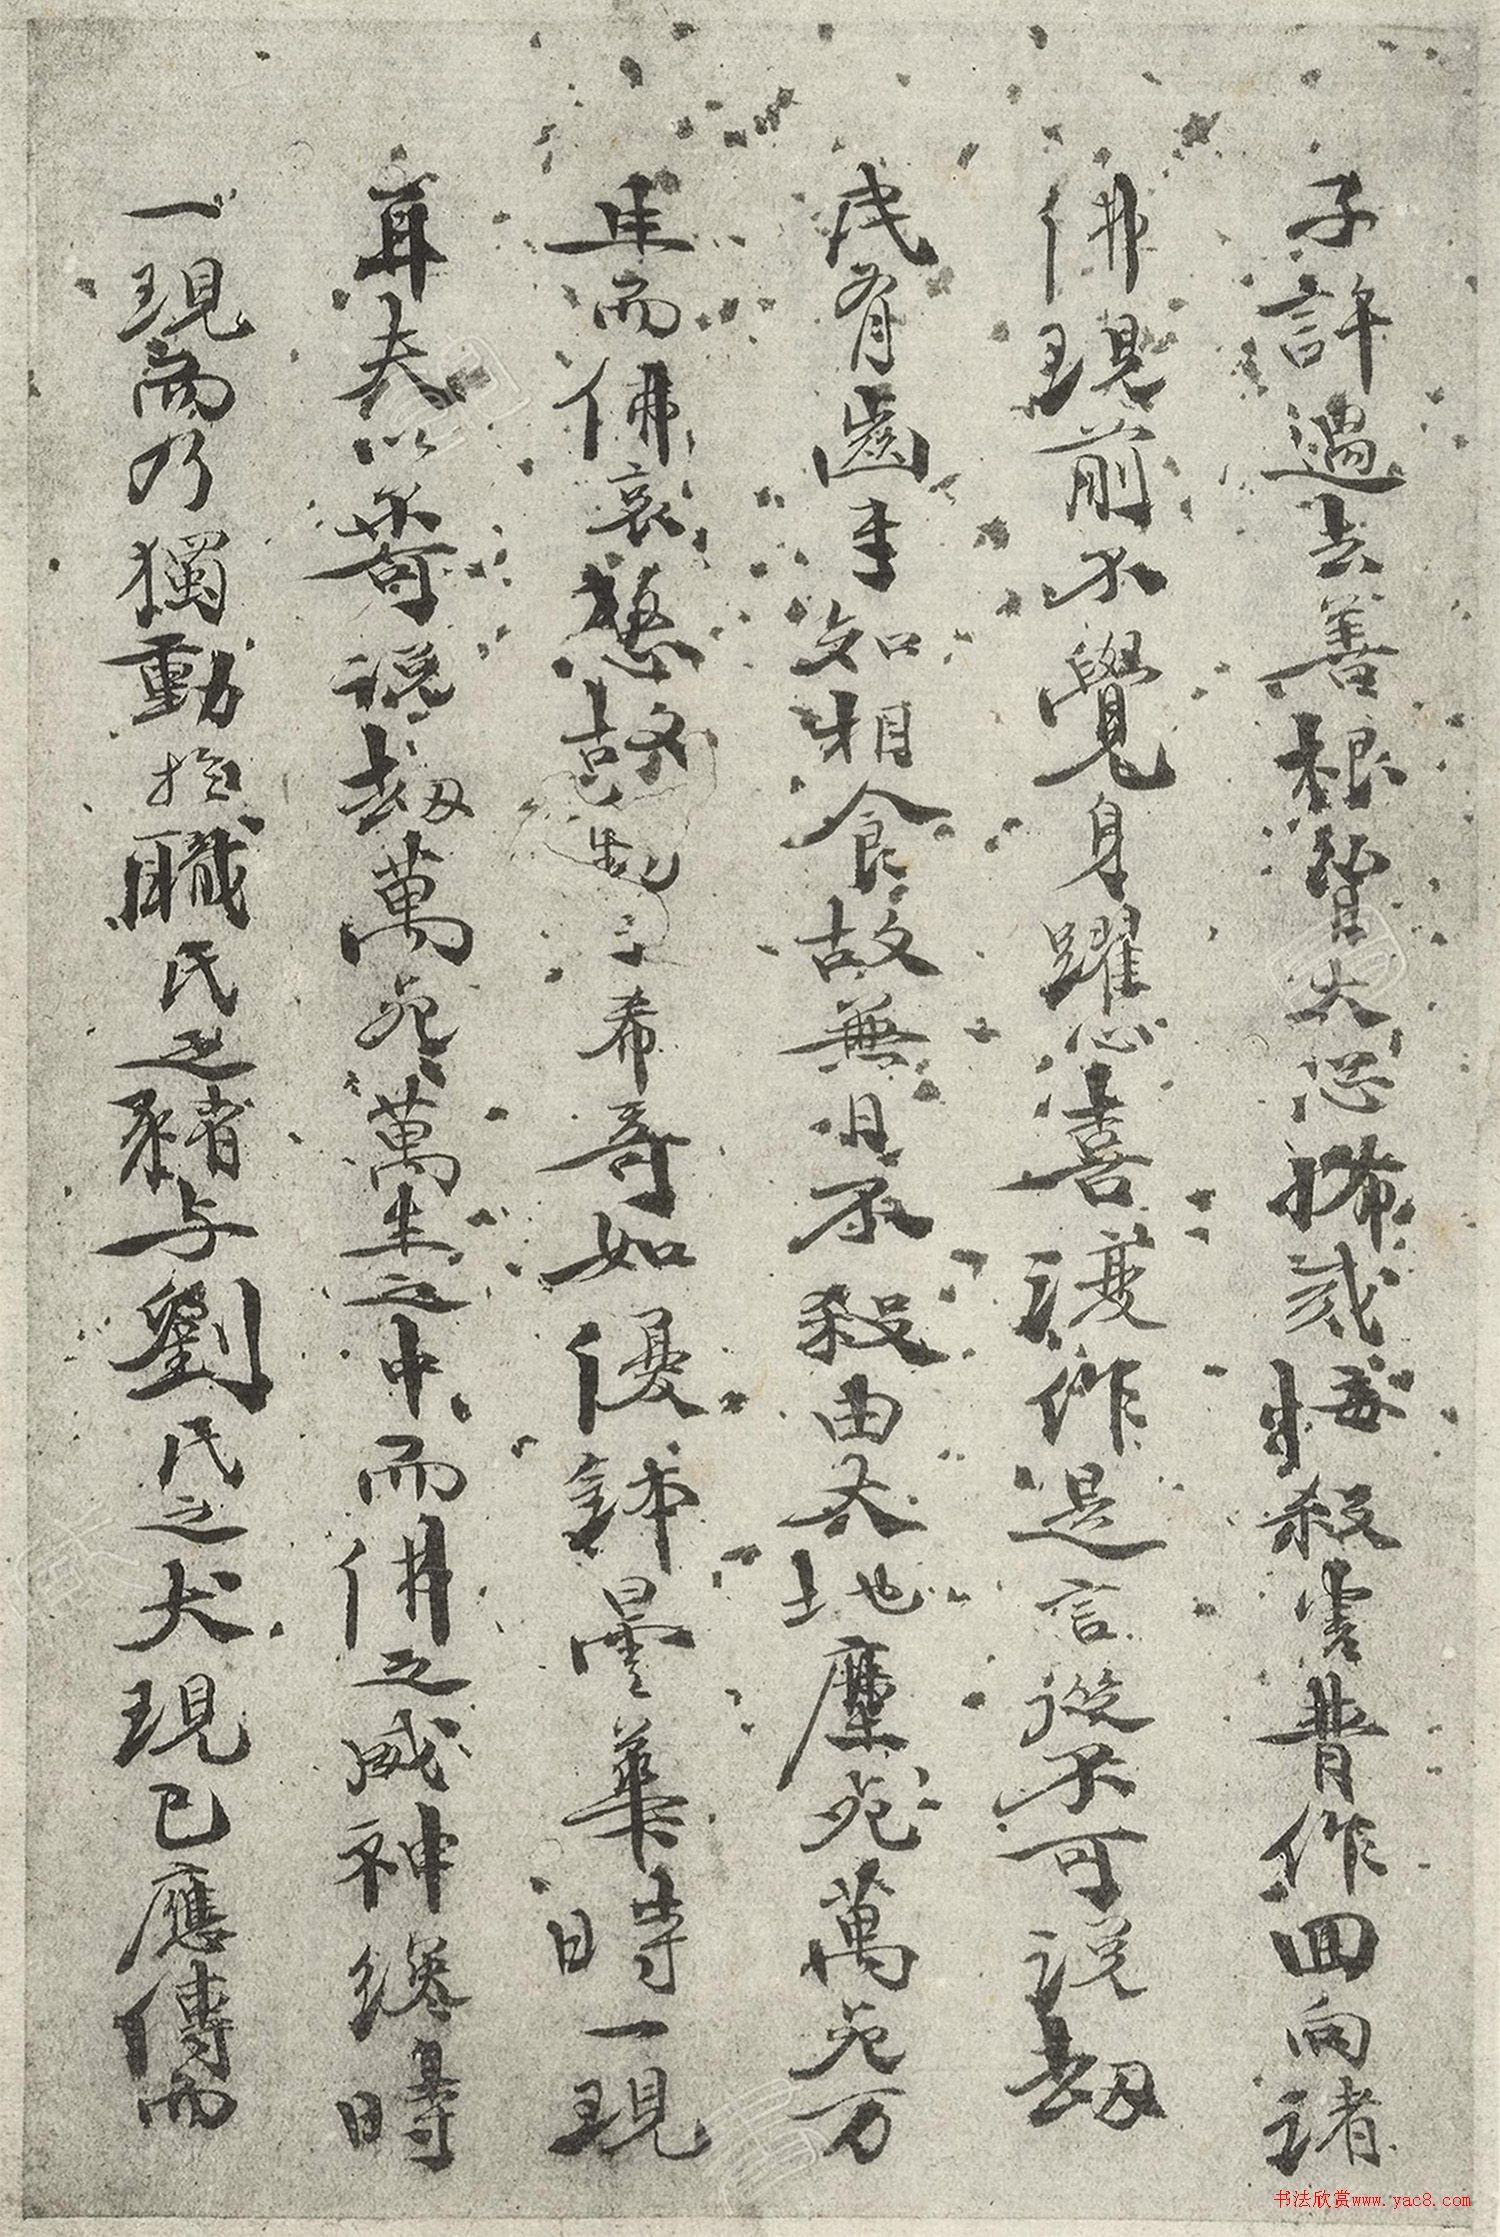 子許過去善根皆大恐怖或悔殺害昔作回向諸
佛現前不覺身躍心喜讚作是言從不可說劫
或有齒事如相食故無且不殺由大地塵死萬死万
生而佛哀愍故希奇如優鉢曇華時一現
耳夫以希奇说劫萬死萬生之中而佛之威神從時
一現而乃獨動於職氏之豬与劉氏之犬現已應傳而
书法欣赏www.yac8.com